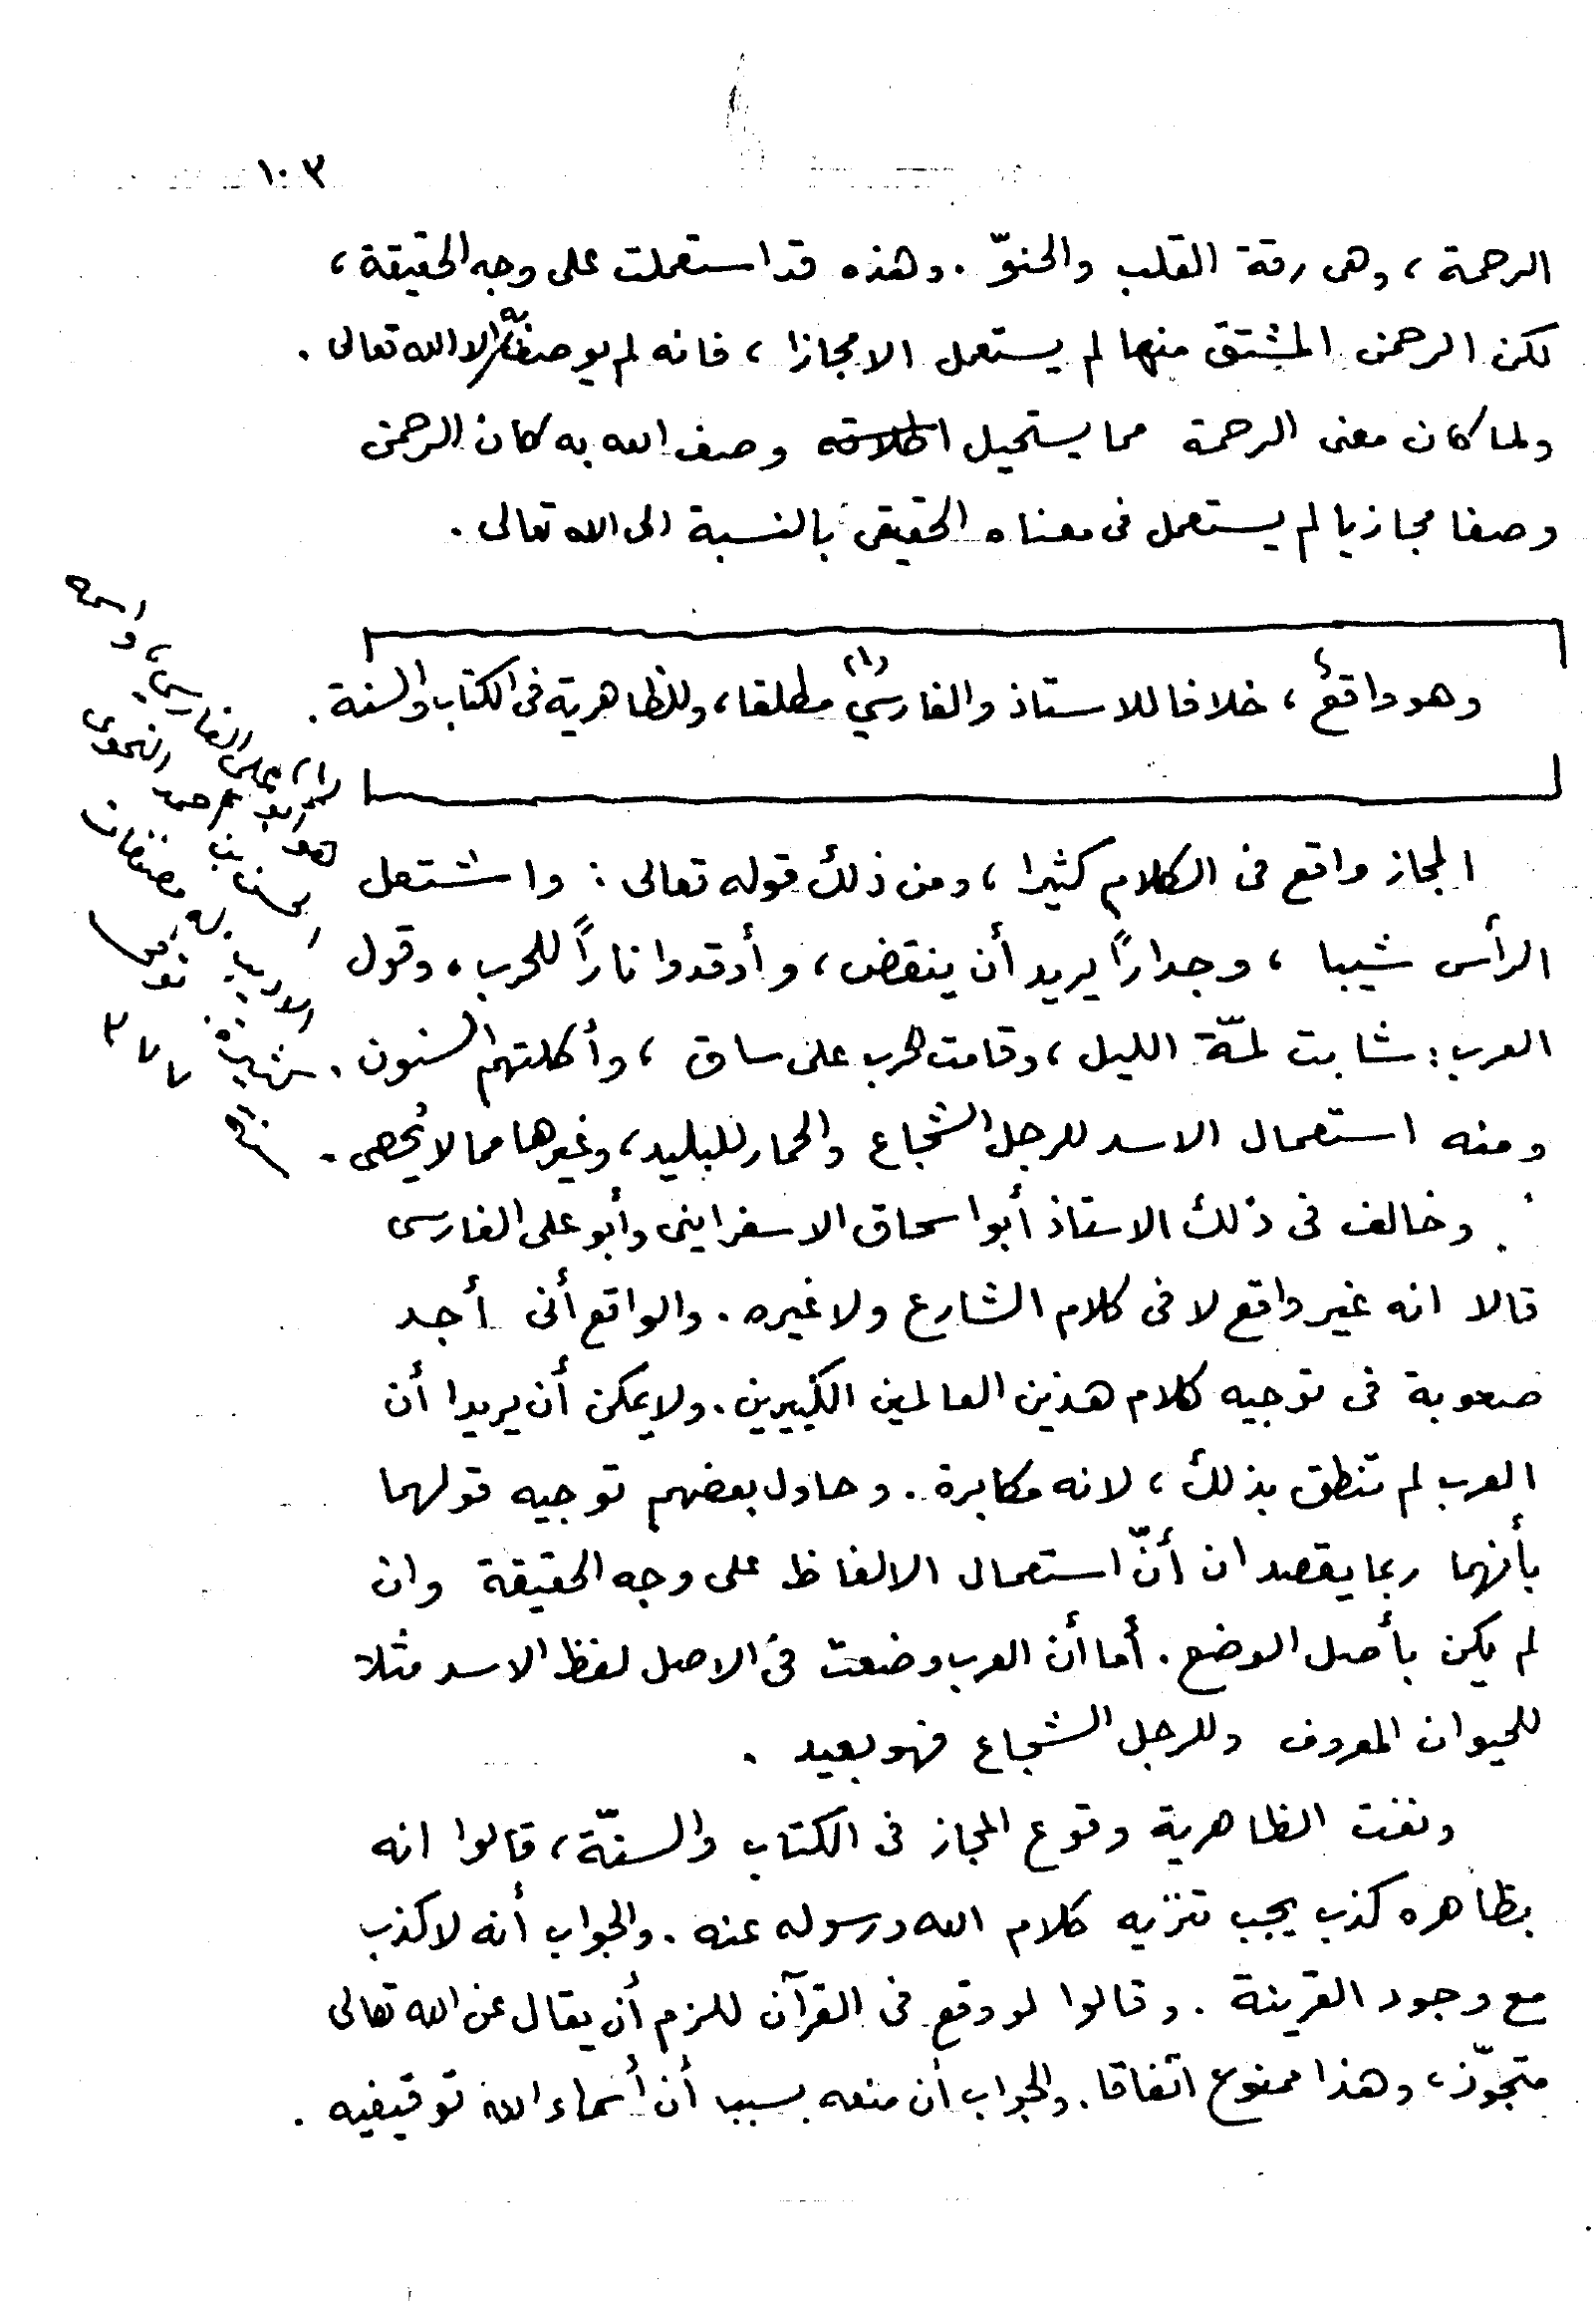 ١٠٣
الرحمة ، وهى رقة القلب والحنوّ . وهذه قد استعملت على وجه الحقيقة ،
لكن الرحمن المشتق منها لم يستعمل الا مجازا ، فانه لم يوصف به الا الله تعالى .
ولما كان معنى الرحمة مما يستحيل اطلاقه وصف الله به كان الرحمن
وصفا مجازيا لم يستعمل فى معناه الحقيقى بالنسبة الى الله تعالى .
وهو واقع ، خلافا للاستاذ والفارسي (١) مطلقا ، وللظاهرية فى الكتاب والسنة .
المجاز واقع فى الكلام كثيرا ، ومن ذلك قوله تعالى : واشتعل
الرأس شيبا ، وجداراً يريد أن ينقض ، وأوقدوا ناراً للحرب ، وقول
العرب : شابت لمّة الليل ، وقامت الحرب على ساق ، وأكلتهم السنون .
ومنه استعمال الاسد للرجل الشجاع والحمار للبليد ، وغيرها مما لا يُحصى .
وخالف فى ذلك الاستاذ أبو اسحاق الاسفراينى وأبو على الفارسى
قالا انه غير واقع لا فى كلام الشارع ولا غيره . والواقع أنى أجد
صعوبة فى توجيه كلام هذين العالمين الكبيرين . ولا يمكن أن يريدا أن
العرب لم تنطق بذلك ، لانه مكابرة . وحاول بعضهم توجيه قولهما
بأنهما ربما يقصدان أنّ استعمال الالفاظ على وجه الحقيقة وان
لم يكن بأصل الوضع . أما أن العرب وضعت فى الاصل لفظ الاسد مثلا
للحيوان المعروف وللرجل الشجاع فهو بعيد .
ونفت الظاهرية وقوع المجاز فى الكتاب والسنّة ، قالوا انه
بظاهره كذب يجب تنزيه كلام الله ورسوله عنه . والجواب أنه لا كذب
مع وجود القرينة . وقالوا لو وقع فى القرآن للزم أن يقال عن الله تعالى
متجوّز ، وهذا ممنوع اتفاقا . والجواب أن منعه بسبب أن أسماء الله توقيفيه .
(١) على الفارسي ، واسمه
هو أبو
الحسن بن احمد النحوى
الاديب له مصنفات
شهيرة . توفى
سنة ٣٧٧